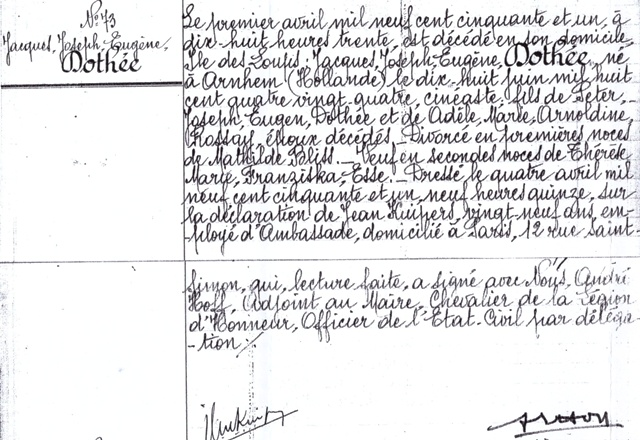 N° 73
Jacques, Joseph Eugène.
Dothée
Le premier avril mil neuf cent cinquante et un, à
dix-huit heures trente, est décédé en son domicile
des Loups: Jacques, Joseph Eugène, Dothée, né
à Arnhem (Hollande) le dix-huit juin mil huit
cent quatre vingt-quatre, cinéaste. fils de Peter,
Joseph Eugen, Dothée et de Adèle, Marie, Arnoldine,
époux décédés. Divorcé en premières noces
de Mathilde Bliss. Veuf en secondes noces de Thérèse
Marie, Franziska, Esse. Dressé le quatre avril mil
neuf cent cinquante et un, neuf heures quinze, sur
la déclaration de Jean Kuijpers, vingt-neuf ans, em-
ployé d'Ambassade, domicilié à Paris, 12 rue Saint-
Simon, qui, lecture faite, a signé avec Nous, André
Hoff, Adjoint au Maire, Chevalier de la Légion
d'Honneur, Officier de l'Etat-Civil par déléga-
-tion.